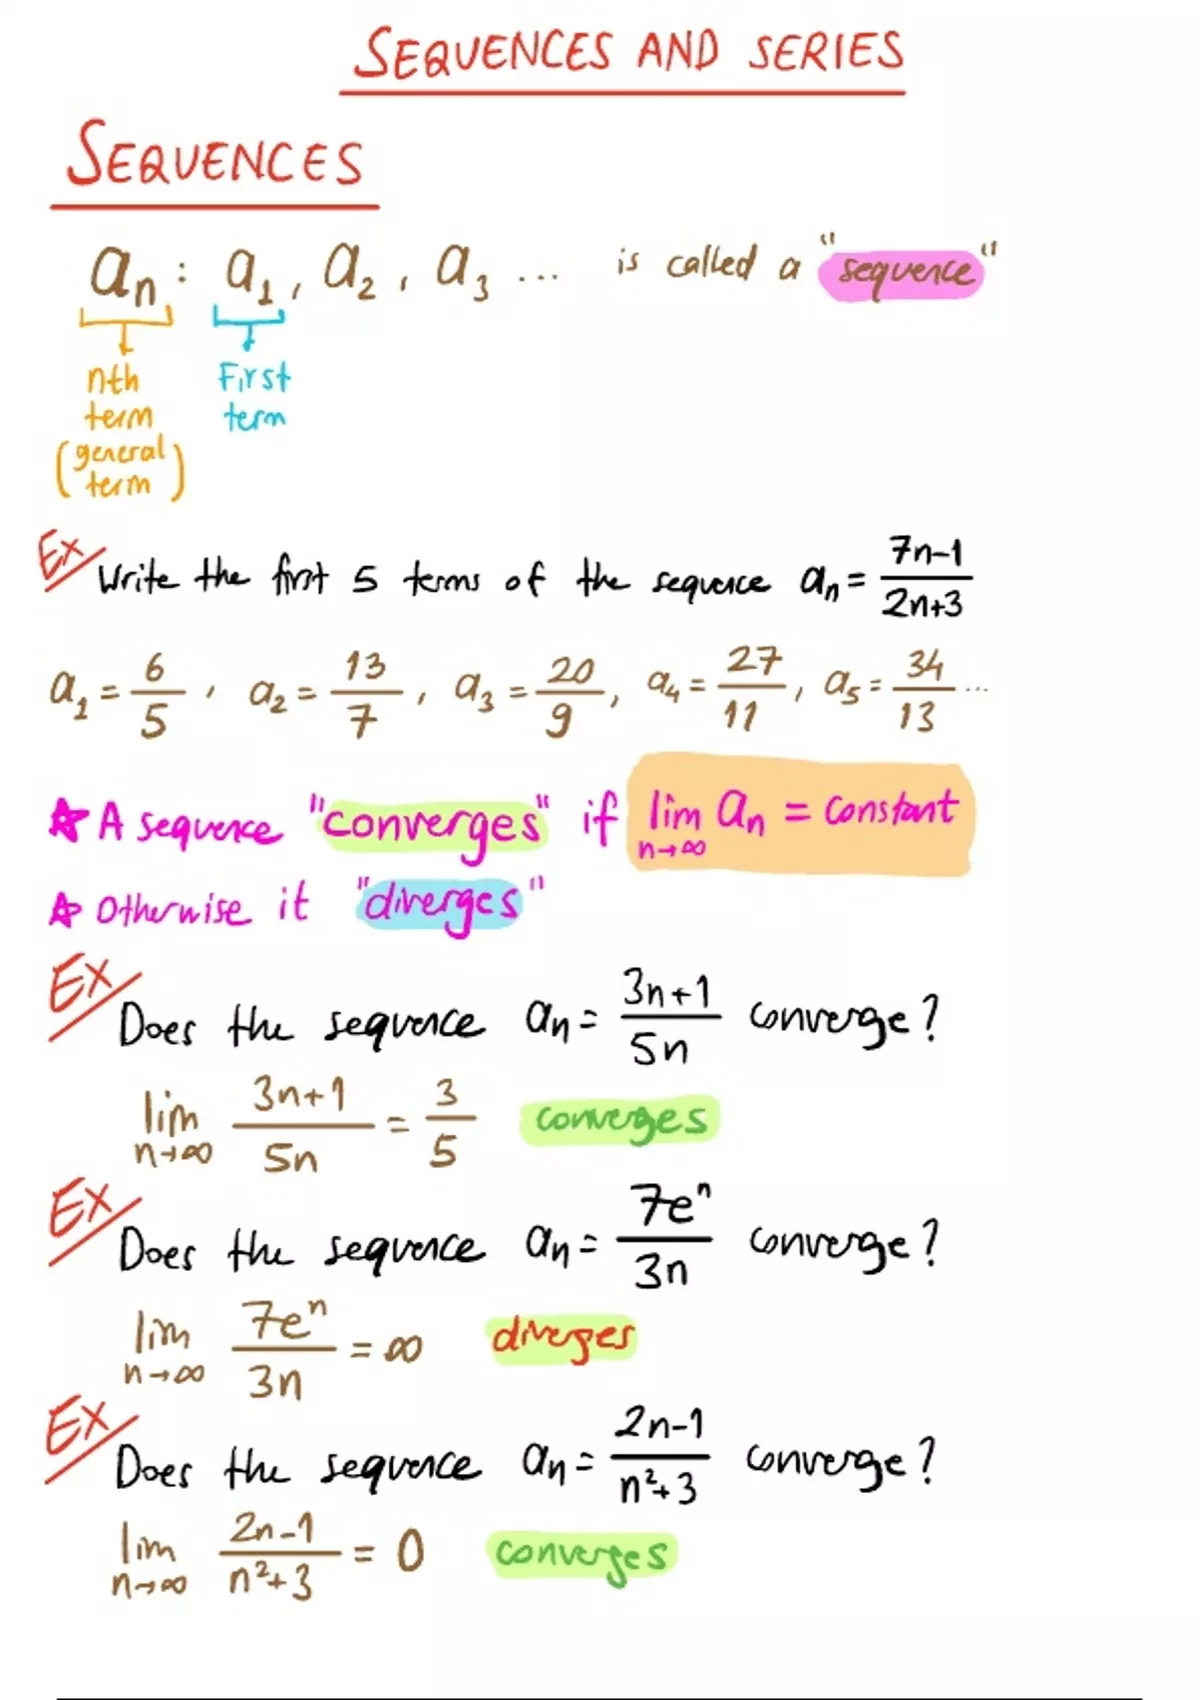 SEQUENCES AND SERIES
SEQUENCES
aₙ : a₁, a₂, a₃ ... is called a "sequence"
nth term (general term)
First term
Ex Write the first 5 terms of the sequence aₙ = (7n-1)/(2n+3)
a₁ = 6/5, a₂ = 13/7, a₃ = 20/9, a₄ = 27/11, a₅ = 34/13 ...
☆ A sequence "converges" if lim n→∞ aₙ = constant
☆ Otherwise it "diverges"
Ex Does the sequence aₙ = (3n+1)/(5n) converge?
lim n→∞ (3n+1)/(5n) = 3/5 converges
Ex Does the sequence aₙ = (7eⁿ)/(3n) converge?
lim n→∞ (7eⁿ)/(3n) = ∞ diverges
Ex Does the sequence aₙ = (2n-1)/(n²+3) converge?
lim n→∞ (2n-1)/(n²+3) = 0 converges